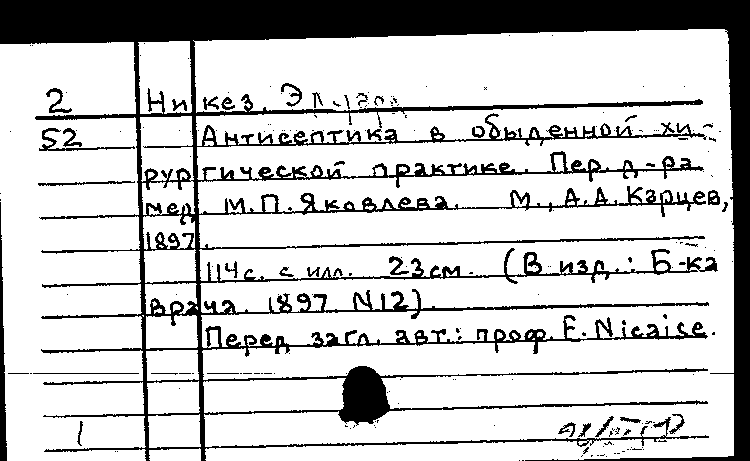 2 Никез. Э
52 Антисептика в обыденной хи-
рургической практике. Пер. д-ра
мед. М.П. Яковлева. М., А.А. Карцев,
1897.
114 с. с илл. 23 см. (В изд.: Б-ка
врача. 1897. N12).
Перед загл. авт.: проф. E. Nicaise.
1